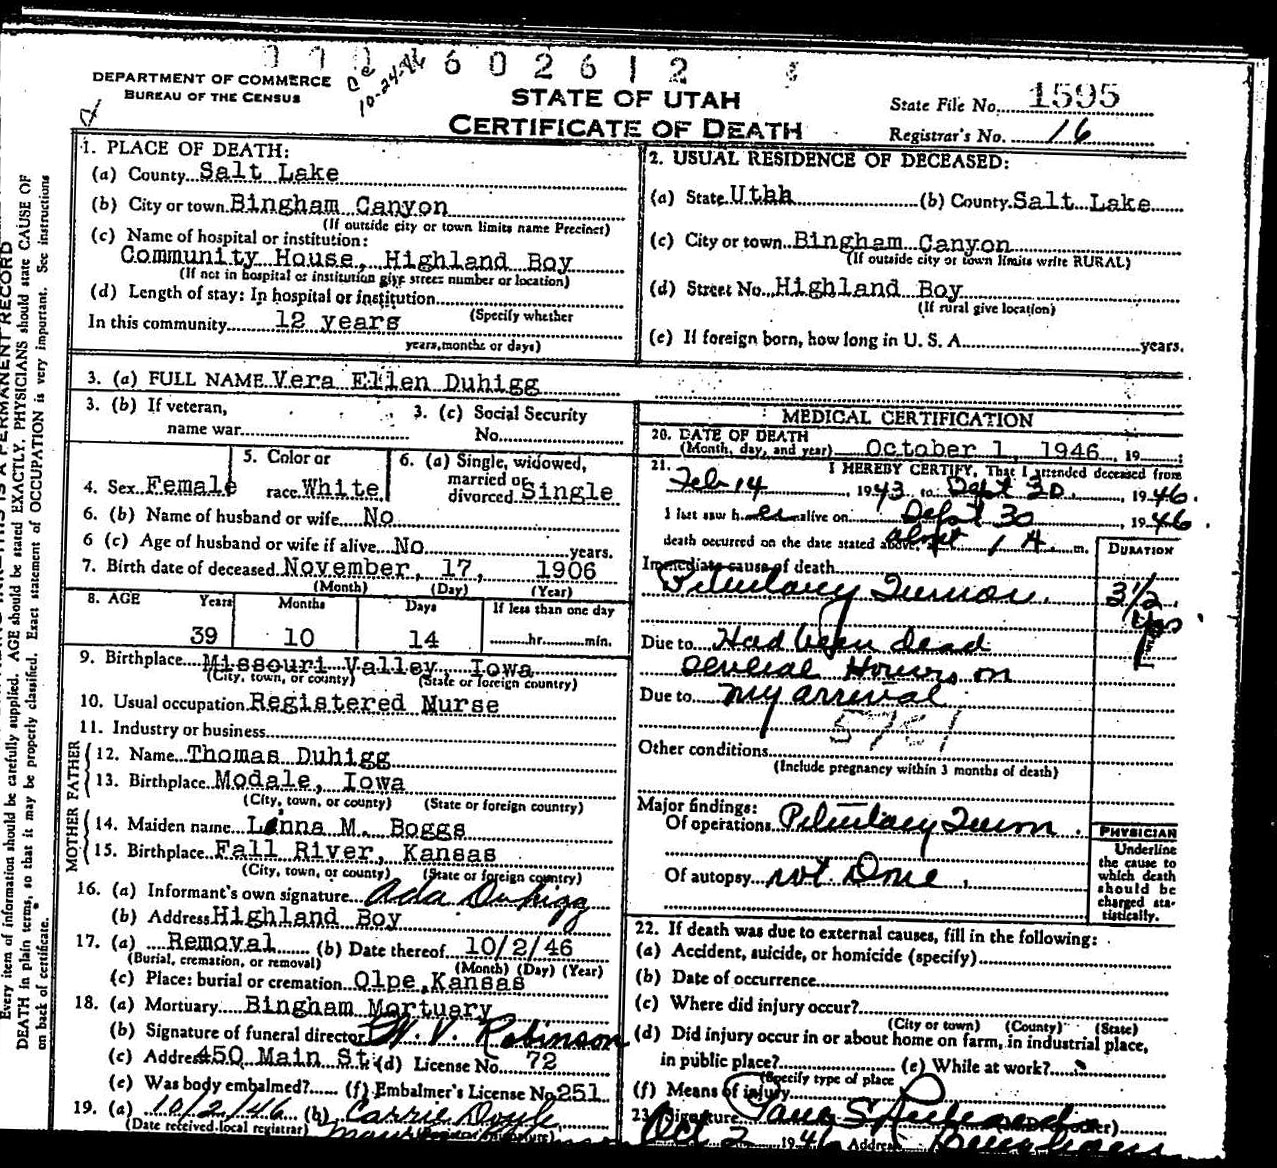 602612
DEPARTMENT OF COMMERCE
BUREAU OF THE CENSUS
10-24-46
STATE OF UTAH
CERTIFICATE OF DEATH
State File No. 1595
Registrar's No. 16
Every item of information should be carefully supplied. AGE should be stated EXACTLY. PHYSICIANS should state CAUSE OF
DEATH in plain terms, so that it may be properly classified. Exact statement of OCCUPATION is very important. See instructions
on back of certificate.
IS A PERMANENT RECORD
1. PLACE OF DEATH:
(a) County Salt Lake
(b) City or town Bingham Canyon
(If outside city or town limits name Precinct)
(c) Name of hospital or institution:
Community House, Highland Boy
(If not in hospital or institution give street number or location)
(d) Length of stay: In hospital or institution
(Specify whether
In this community 12 years
years, months or days)
2. USUAL RESIDENCE OF DECEASED:
(a) State Uthh (b) County Salt Lake
(c) City or town Bingham Canyon
(If outside city or town limits write RURAL)
(d) Street No. Highland Boy
(If rural give location)
(e) If foreign born, how long in U. S. A. years.
3. (a) FULL NAME Vera Ellen Duhigg
3. (b) If veteran,
name war
3. (c) Social Security
No.
4. Sex Female
5. Color or
race White
6. (a) Single, widowed,
married or
divorced Single
6. (b) Name of husband or wife No
6 (c) Age of husband or wife if alive No years.
7. Birth date of deceased November, 17, 1906
(Month) (Day) (Year)
8. AGE Years Months Days If less than one day
39 10 14 hr. min.
9. Birthplace Missouri Valley Iowa
(City, town, or county) (State or foreign country)
10. Usual occupation Registered Nurse
11. Industry or business
FATHER
12. Name Thomas Duhigg
13. Birthplace Modale, Iowa
(City, town, or county) (State or foreign country)
MOTHER
14. Maiden name Lenna M. Boggs
15. Birthplace Fall River, Kansas
(City, town, or county) (State or foreign country)
16. (a) Informant's own signature Ada Duhigg
(b) Address Highland Boy
17. (a) Removal (b) Date thereof 10/2/46
(Burial, cremation, or removal) (Month) (Day) (Year)
(c) Place: burial or cremation Olpe, Kansas
18. (a) Mortuary Bingham Mortuary
(b) Signature of funeral director W. V. Robinson
(c) Address 450 Main St. (d) License No. 72
(e) Was body embalmed? (f) Embalmer's License No. 251
19. (a) 10/2/46 (b) Carrie Doyle
(Date received local registrar)
MEDICAL CERTIFICATION
20. DATE OF DEATH
(Month, day, and year) October 1, 1946, 19 ;
21. I HEREBY CERTIFY, That I attended deceased from
Feb 14, 1943 to Sept 30, 1946.
I last saw her alive on Sept 30, 1946.
death occurred on the date stated above, at about 1 A. m.
DURATION
Immediate cause of death
Pituitary Tumor. 3 1/2 yrs
Due to Had been dead
several Hours on
Due to my arrival
Other conditions
(Include pregnancy within 3 months of death)
Major findings:
Of operations Pituitary Tumor.
Of autopsy not Done.
PHYSICIAN
Underline
the cause to
which death
should be
charged sta-
tistically.
22. If death was due to external causes, fill in the following:
(a) Accident, suicide, or homicide (specify)
(b) Date of occurrence
(c) Where did injury occur?
(City or town) (County) (State)
(d) Did injury occur in or about home on farm, in industrial place,
in public place? (e) While at work?
(Specify type of place
(f) Means of injury
23. Signature Paul S. Richards
Oct 2 1946 Address Bingham